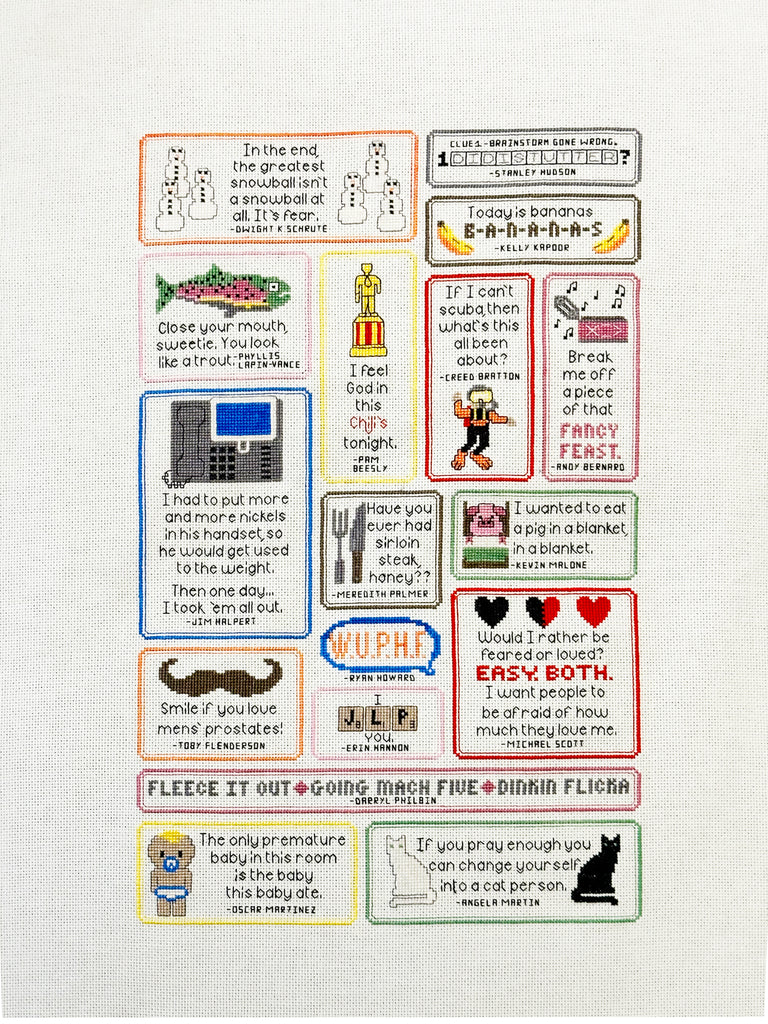 In the end,
the greatest
snowball isn't
a snowball at
all. It's fear.
-DWIGHT K SCHRUTE
CLUE1-BRAINSTORM GONE WRONG.
1DIDISTUTTER?
-STANLEY HUDSON
Today is bananas
B-A-N-A-N-A-S
-KELLY KAPOOR
Close your mouth,
sweetie. You look
like a trout.-PHYLLIS
LAPIN-VANCE
I feel
God in
this
Chili's
tonight.
-PAM
BEESLY
If I can't
scuba,then
what's this
all been
about?
-CREED BRATTON
Break
me off
a piece
of that
FANCY
FEAST.
-ANDY BERNARD
I had to put more
and more nickels
in his handset, so
he would get used
to the weight.
Then one day...
I took 'em all out.
-JIM HALPERT
Have you
ever had
sirloin
steak,
honey??
-MEREDITH PALMER
I wanted to eat
a pig in a blanket,
in a blanket.
-KEVIN MALONE
W.U.P.H.F.
-RYAN HOWARD
Would I rather be
feared or loved?
EASY. BOTH.
I want people to
be afraid of how
much they love me.
-MICHAEL SCOTT
Smile if you love
mens' prostates!
-TOBY FLENDERSON
I
JLP
you.
-ERIN HANNON
FLEECE IT OUT GOING MACH FIVE DINKIN FLICKA
-DARRYL PHILBIN
The only premature
baby in this room
is the baby
this baby ate.
-OSCAR MARTINEZ
If you pray enough you
can change yourself
into a cat person.
-ANGELA MARTIN